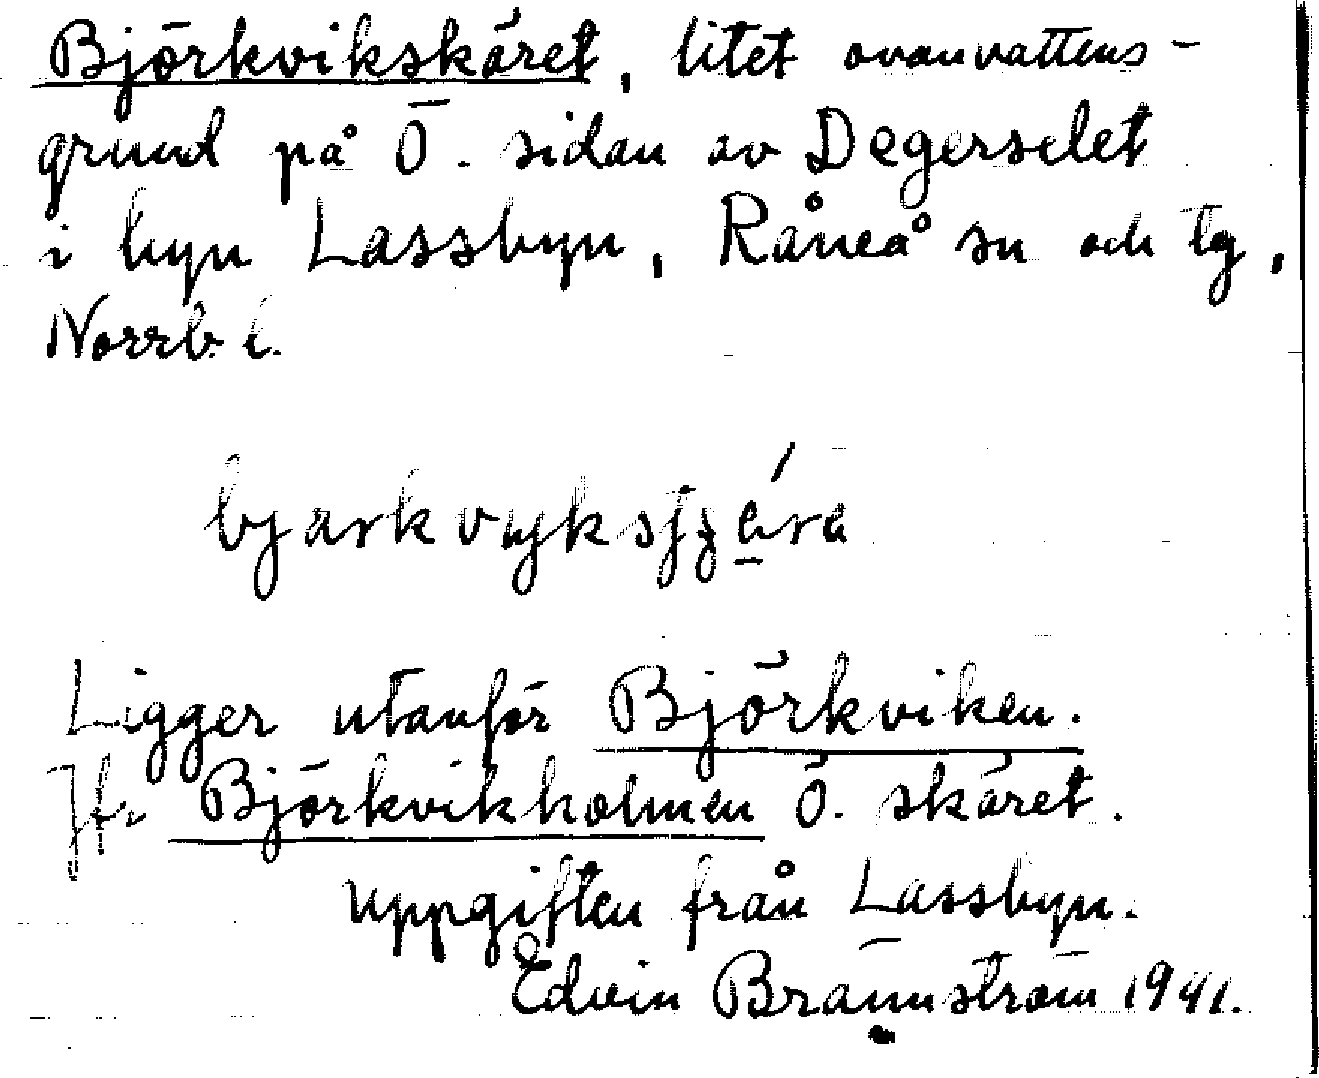 Björkvikskäret, litet ovanvattens-
grund på Ö. sidan av Degerselet
i byn Lassbyn, Råneå sn och tg,
Norrb. l.
Ligger utanför Björkviken.
Jfr Björkvikholmen Ö. skäret.
uppgiften från Lassbyn.
Edvin Brännström 1941.